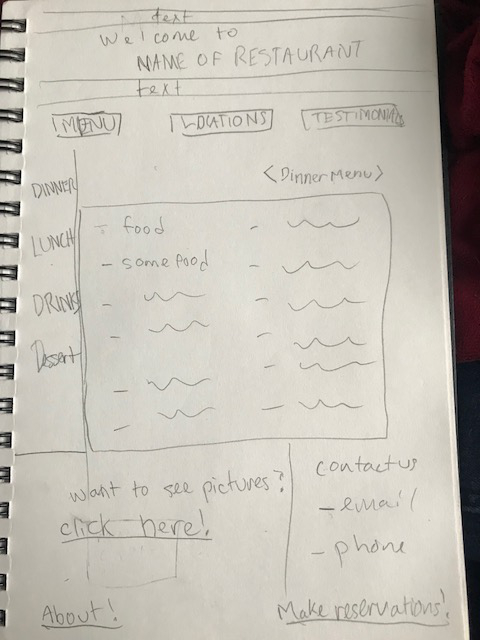 text
Welcome to
NAME OF RESTAURANT
text
MENU LOCATIONS TESTIMONIALS
<Dinner Menu>
DINNER
LUNCH
DRINKS
Dessert
- food -
- some food -
- -
- -
-
- -
-
want to see pictures?
click here!
contact us
- email
- phone
About!
Make reservations!